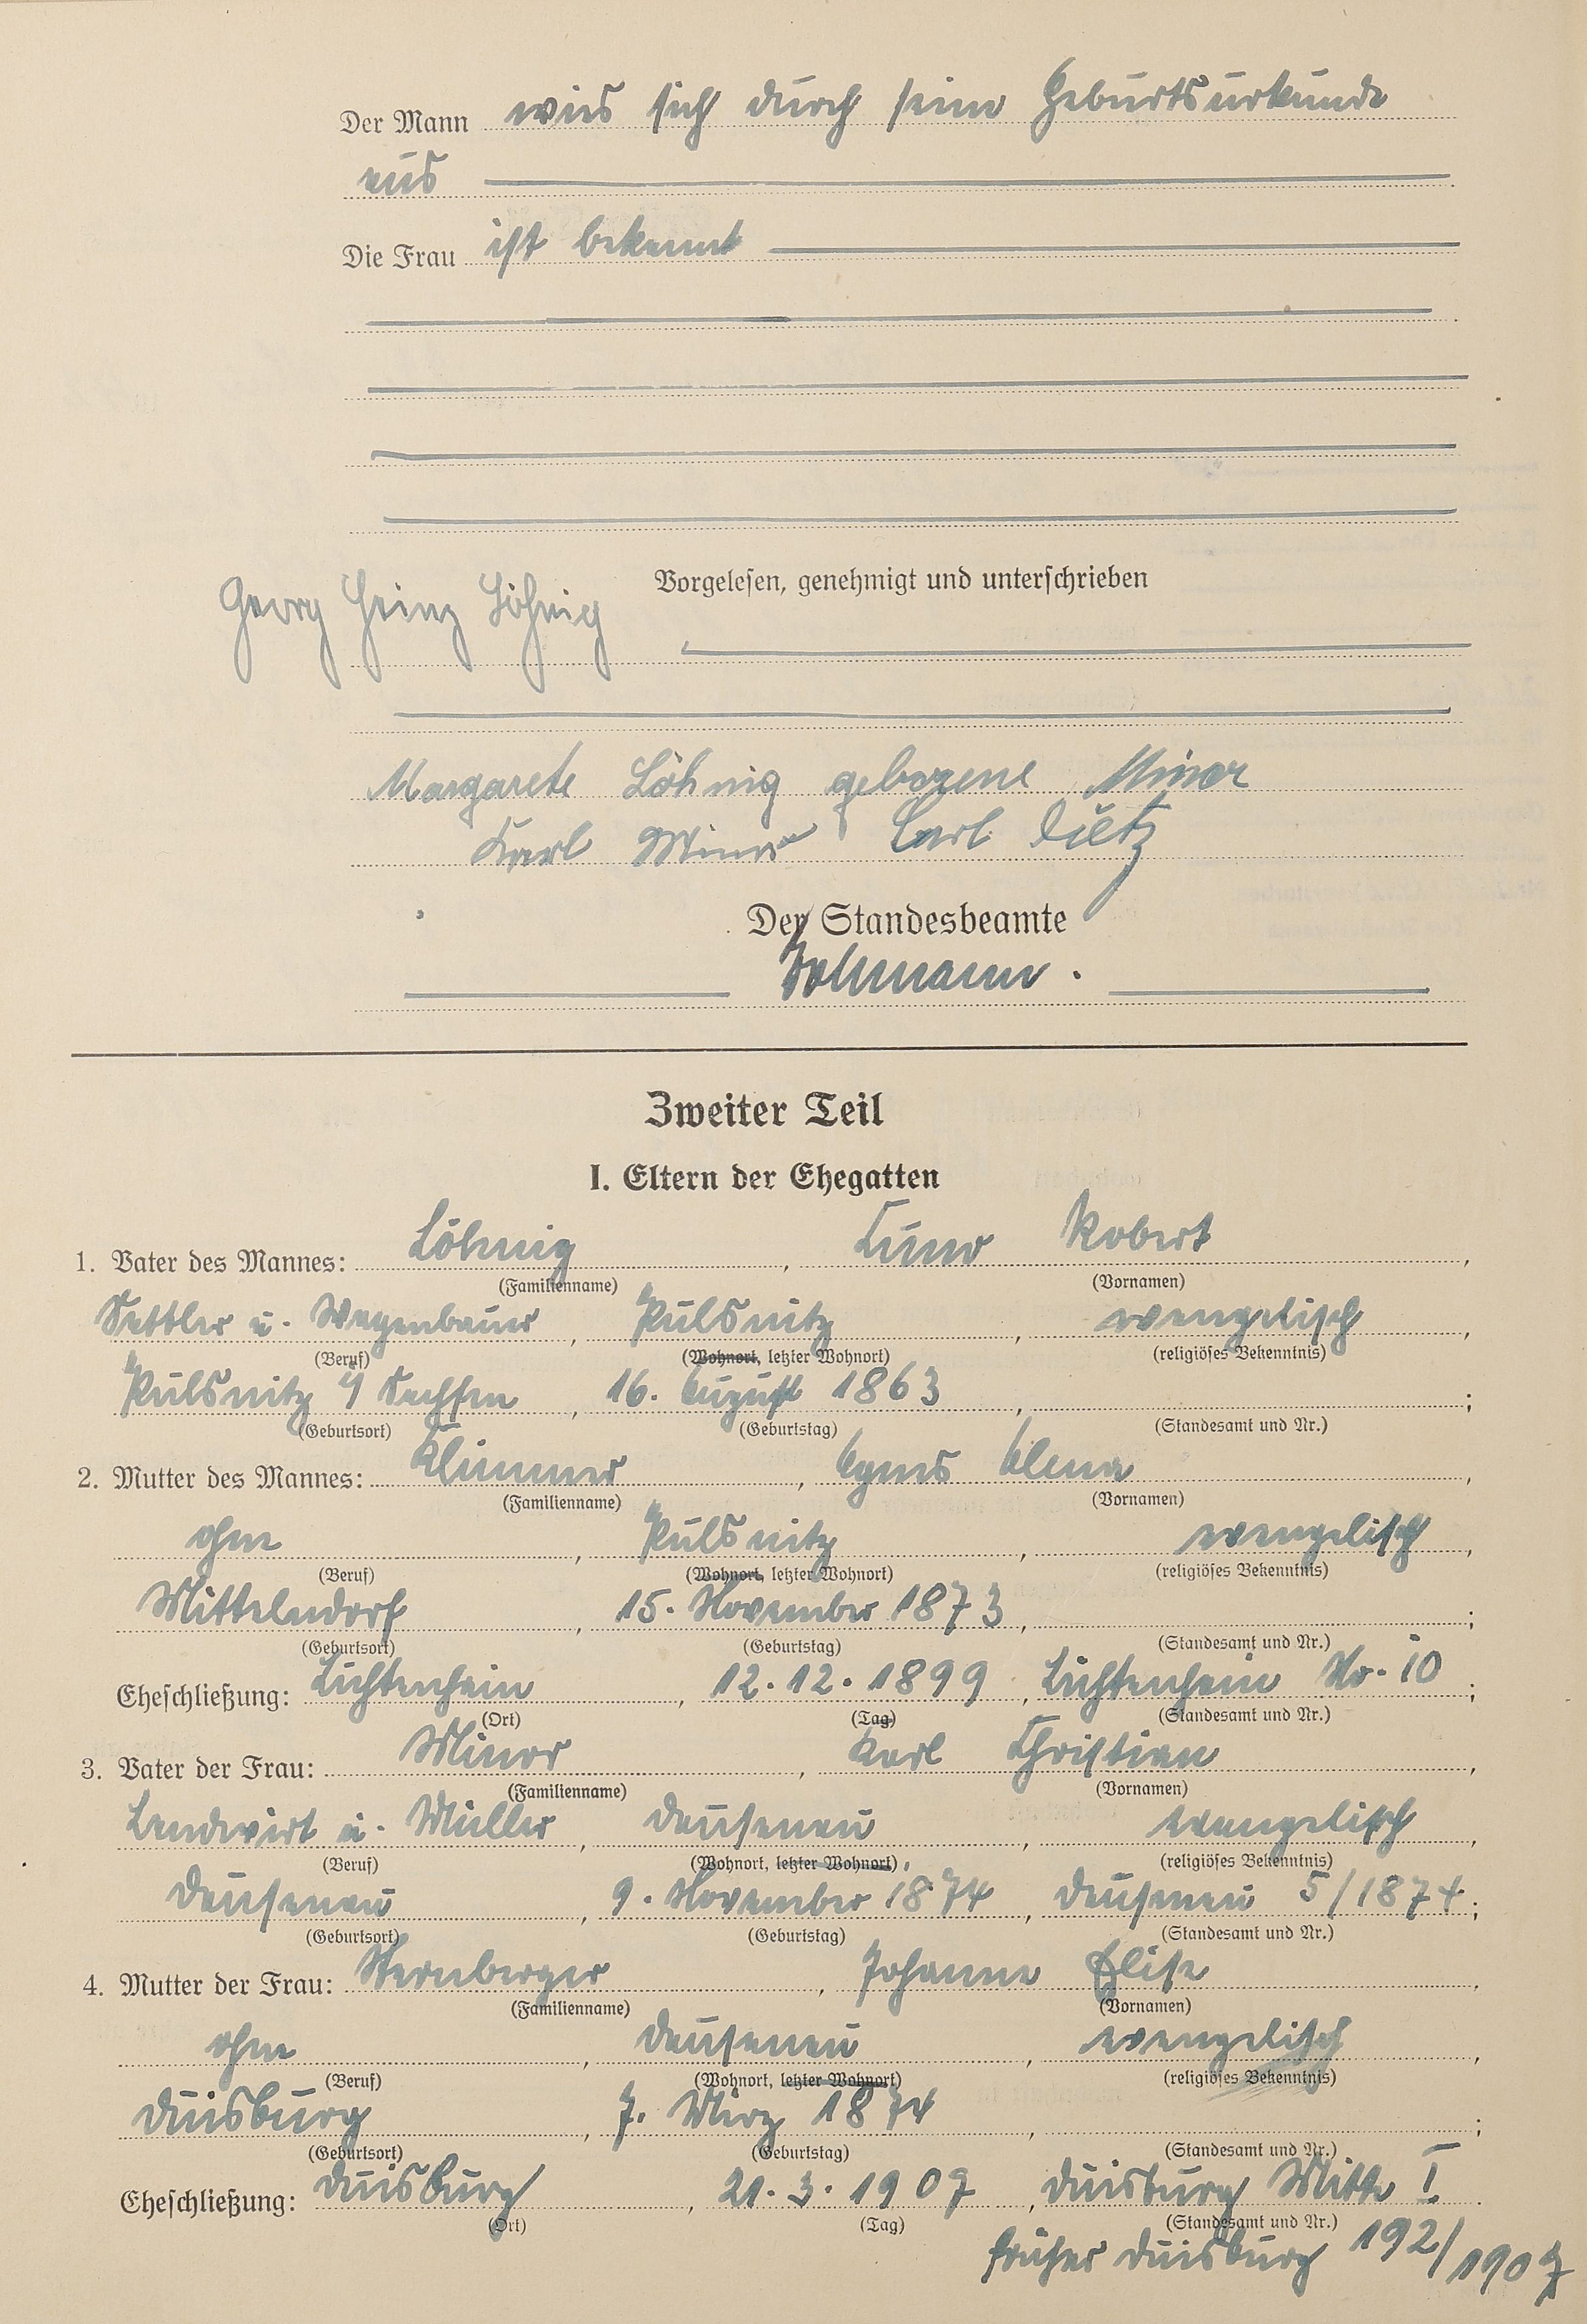 Der Mann wies sich durch seine Geburtsurkunde
aus
Die Frau ist bekannt
Vorgelesen, genehmigt und unterschrieben
Georg Heinz Löhnig
Margarete Löhnig geborene Minor
Karl Minor Carl Dietz
Der Standesbeamte
Zweiter Teil
I. Eltern der Ehegatten
1. Vater des Mannes: Löhnig, Kuno Robert,
(Familienname) (Vornamen)
Sattler u. Wagenbauer, Pulsnitz, evangelisch,
(Beruf) (Wohnort, letzter Wohnort) (religiöses Bekenntnis)
Pulsnitz i/ Sachsen, 16. August 1863, ;
(Geburtsort) (Geburtstag) (Standesamt und Nr.)
2. Mutter des Mannes: Klimmer, Agnes Alma,
(Familienname) (Vornamen)
ohne, Pulsnitz, evangelisch,
(Beruf) (Wohnort, letzter Wohnort) (religiöses Bekenntnis)
Mittelndorf, 15. November 1873, ;
(Geburtsort) (Geburtstag) (Standesamt und Nr.)
Eheschließung: Lichtenhain, 12.12.1899, Lichtenhain Nr. 10;
(Ort) (Tag) (Standesamt und Nr.)
3. Vater der Frau: Minor, Karl Christian,
(Familienname) (Vornamen)
Landwirt u. Müller, Dausenau, evangelisch,
(Beruf) (Wohnort, letzter Wohnort) (religiöses Bekenntnis)
Dausenau, 9. November 1874, Dausenau 5/1874;
(Geburtsort) (Geburtstag) (Standesamt und Nr.)
4. Mutter der Frau: Sternberger, Johanne Elise,
(Familienname) (Vornamen)
ohne, Dausenau, evangelisch,
(Beruf) (Wohnort, letzter Wohnort) (religiöses Bekenntnis)
Duisburg, 7. März 1874, ;
(Geburtsort) (Geburtstag) (Standesamt und Nr.)
Eheschließung: Duisburg, 21.3.1907, Duisburg Mitte I.
(Ort) (Tag) (Standesamt und Nr.)
früher Duisburg 192/1907